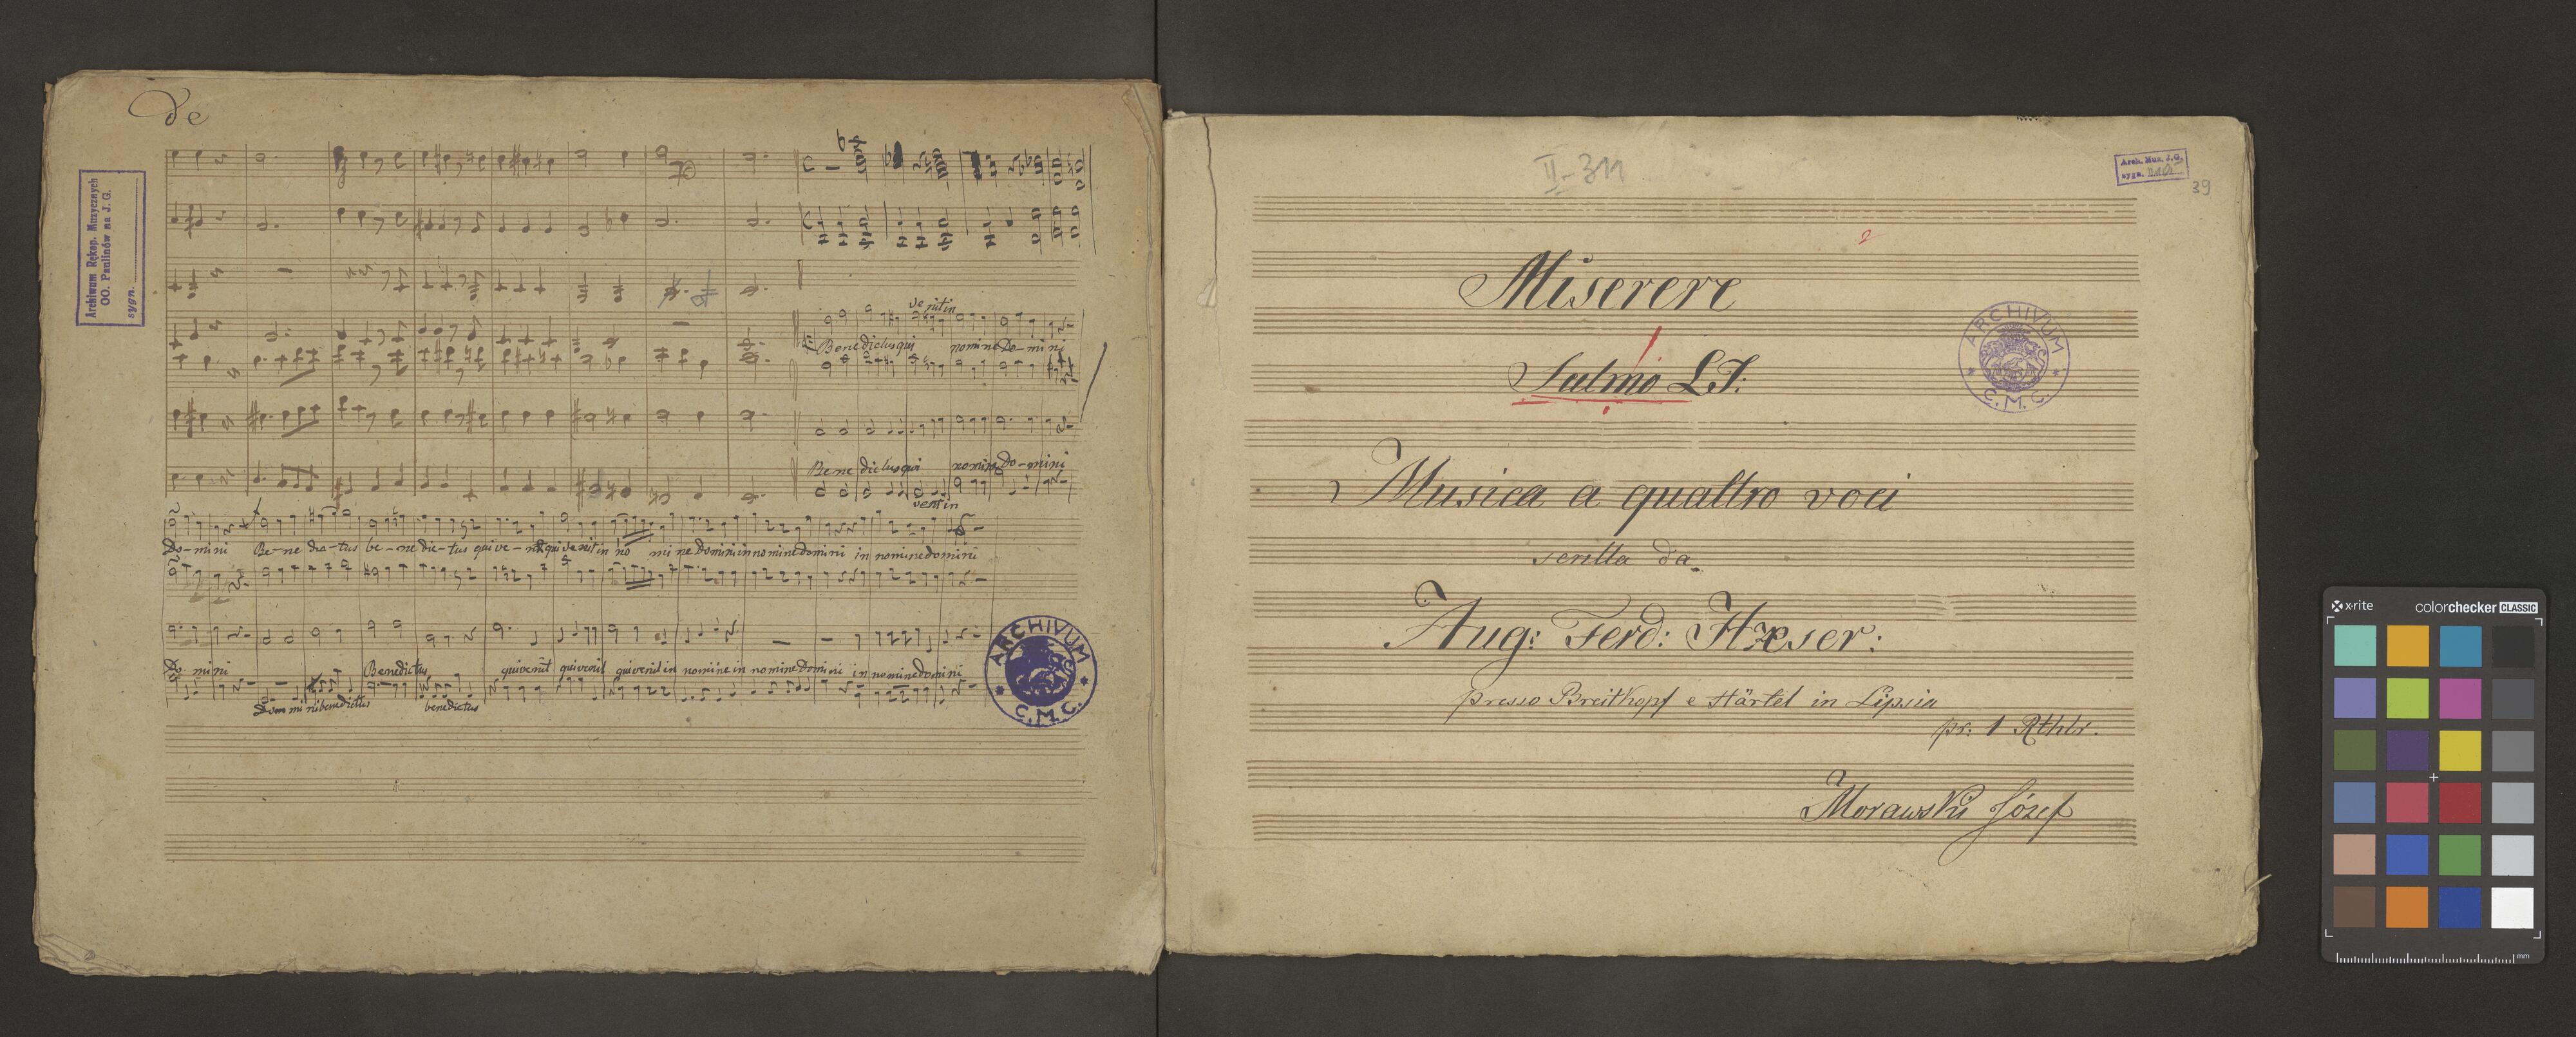 De
Archiwum Rękop. Muzycznych
OO. Paulinów na J. G.
sygn.
ve nit in
Benedictus qui nomine Do-mi ni
Bene dictus qui nomine Do-mini
venit in
Do-mi ni Be-ne dic-tus be-ne dic-tus qui ve-nit qui venit in no mi ne Domini in nomine domini in nomine domini
Do mi ni Benedictus qui venit qui venit qui venit in nomine in nomine Domini in nomine domini
Dom mi ni benedictus benedictus
ARCHIVUM
C.M.C.
II-311
Arch. Muz. J.G.
sygn.
39
2
Miserere
Salmo LI:
ARCHIVUM
C.M.C.
Musica a quattro voci
scritta da
Aug: Ferd: Hæser:
presso Breitkopf e Härtel in Lipsia
pr: 1 Rthlr.
Morawski Józef
x-rite colorchecker CLASSIC
mm